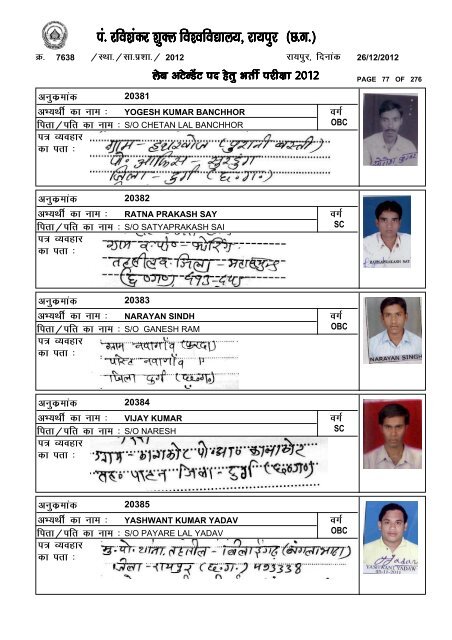 पं. रविशंकर शुक्ल विश्वविद्यालय, रायपुर (छ.ग.)
क्र. 7638 /स्था./सा.प्रशा./ 2012 रायपुर, दिनांक 26/12/2012
लेब अटेन्डेंट पद हेतु भर्ती परीक्षा 2012 PAGE 77 OF 276
अनुकमांक 20381
अभ्यर्थी का नाम : YOGESH KUMAR BANCHHOR वर्ग
पिता/पति का नाम : S/O CHETAN LAL BANCHHOR OBC
पत्र व्यवहार का पता :
ग्राम - (पुरानी बस्ती)
पो. आफिस -
जिला - दुर्ग (छ.ग.)
अनुकमांक 20382
अभ्यर्थी का नाम : RATNA PRAKASH SAY वर्ग
पिता/पति का नाम : S/O SATYAPRAKASH SAI SC
पत्र व्यवहार का पता :
ग्राम व पो०
तहसील व जिला - महासमुन्द
RATNAPRAKASH SAY
अनुकमांक 20383
अभ्यर्थी का नाम : NARAYAN SINDH वर्ग
पिता/पति का नाम : S/O GANESH RAM OBC
पत्र व्यवहार का पता :
ग्राम नवागाँव
पोस्ट नवागाँव
जिला दुर्ग (छ०ग०)
NARAYAN SINGH
अनुकमांक 20384
अभ्यर्थी का नाम : VIJAY KUMAR वर्ग
पिता/पति का नाम : S/O NARESH SC
पत्र व्यवहार का पता :
ग्राम
तह० पाटन जिला - दुर्ग (छ०ग०)
अनुकमांक 20385
अभ्यर्थी का नाम : YASHWANT KUMAR YADAV वर्ग
पिता/पति का नाम : S/O PAYARE LAL YADAV OBC
पत्र व्यवहार का पता :
तहसील - बिलाईगढ़
जिला - रायपुर (छ.ग.) 493338
YASHWANT YADAV